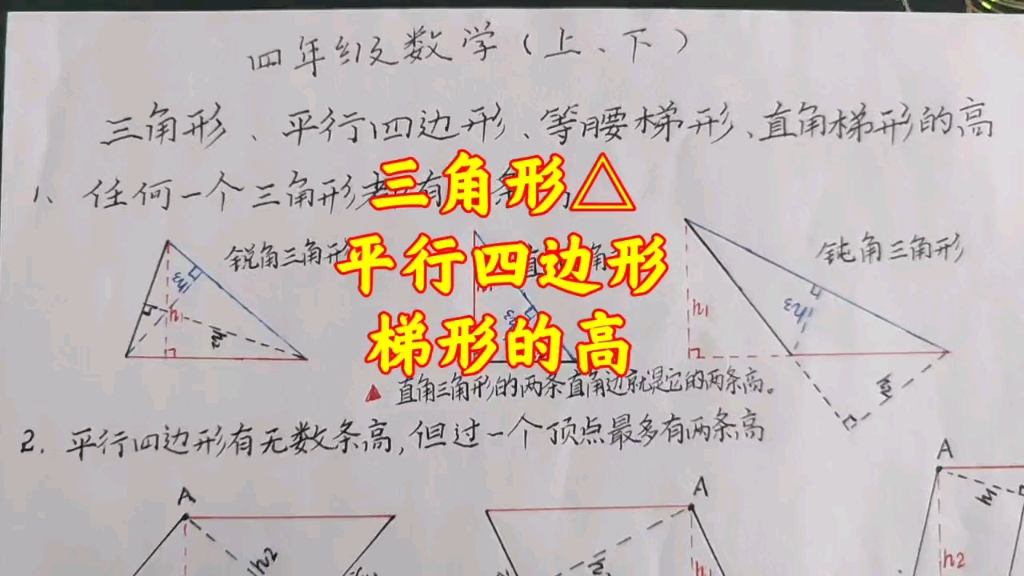 四年级数学（上、下）
三角形、平行四边形、等腰梯形、直角梯形的高
1、任何一个三角形
三角形△
平行四边形
梯形的高
锐角三角形
钝角三角形
h1
h2
h3
h1
h3
▲ 直角三角形的两条直角边就是它的两条高。
2. 平行四边形有无数条高,但过一个顶点最多有两条高
A
h2
A
h1
A
h1
h2